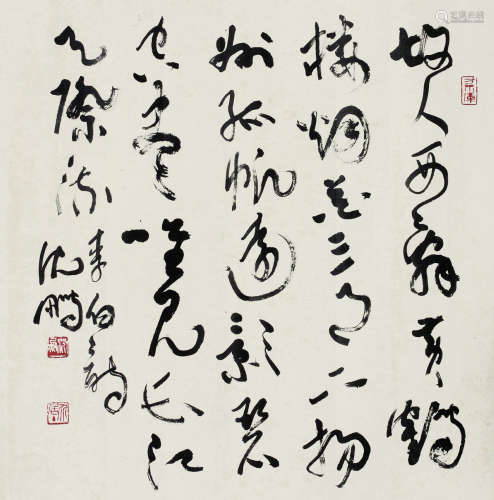 故人西辞黄鹤
楼烟花三月下扬
州孤帆远影碧
空尽唯见长江
天际流 李白诗
沈鹏